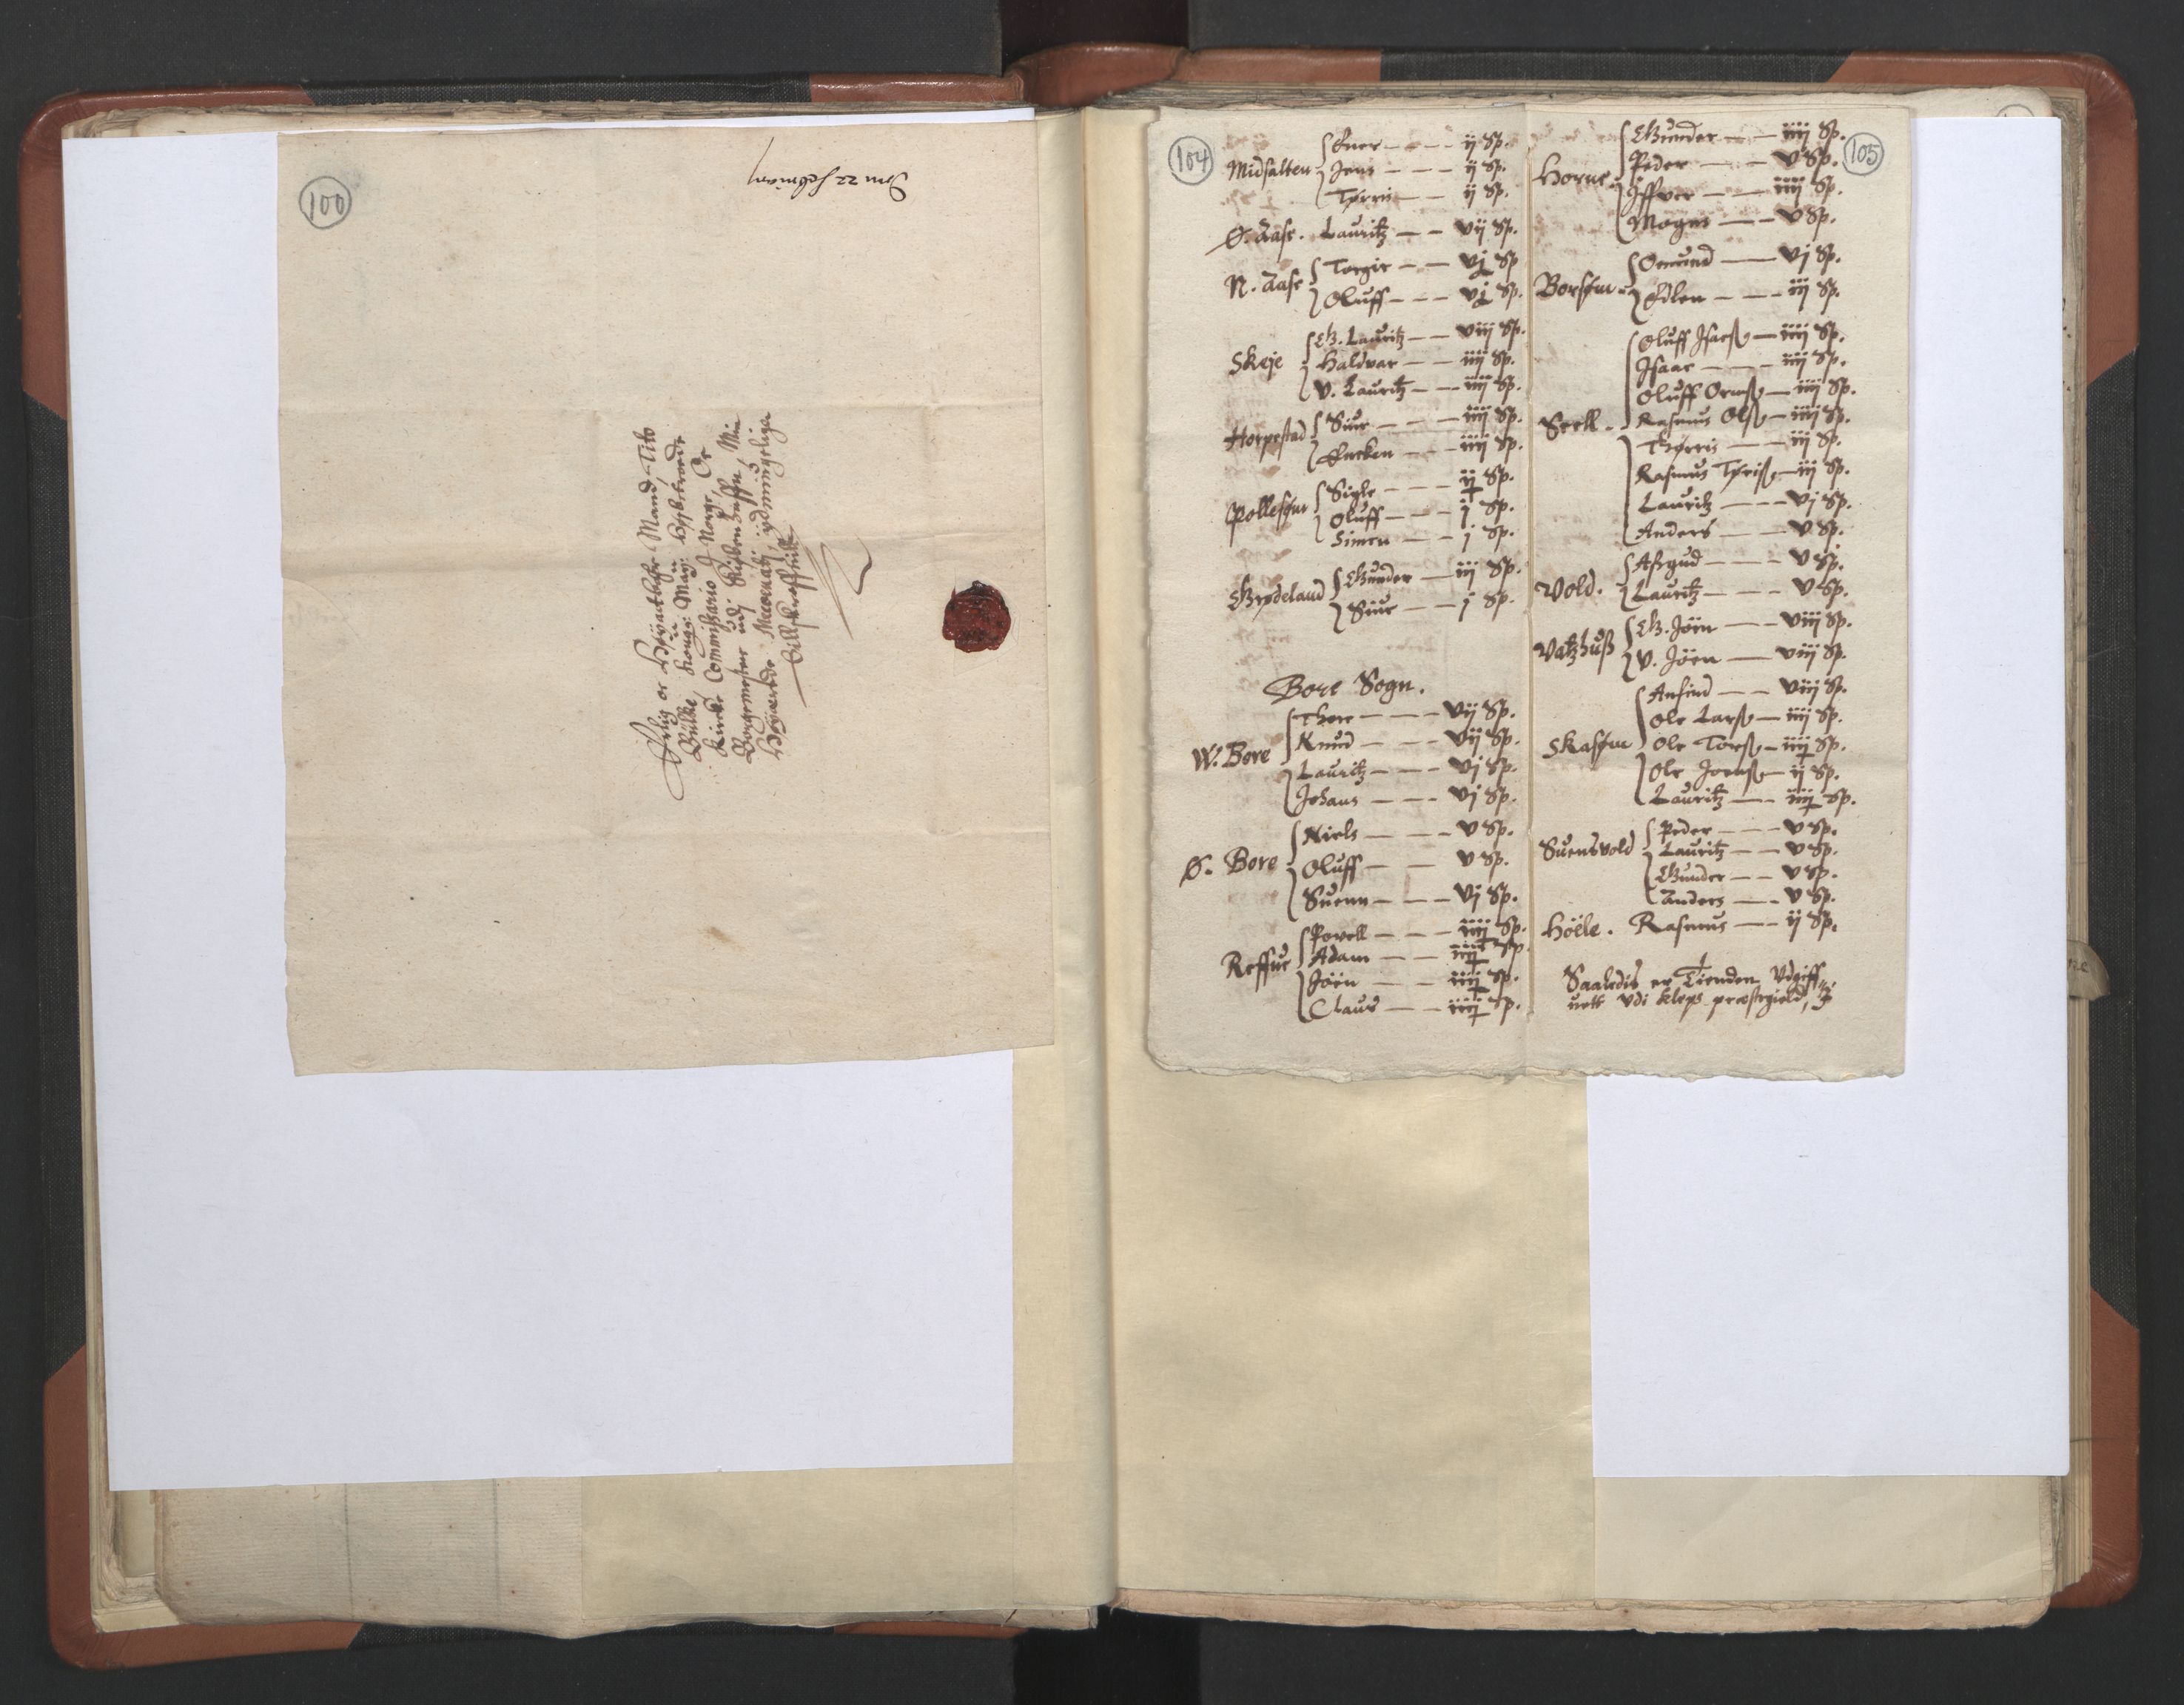 100
Den 22 Februarij
Erlig oc Høyactbar Mand, Tito
Bülke, Kong: May: Høybetroede
Kircke Commissario J Norge, Oc
Borgemester udj Kiøbenhaffn, Min
Høyærede Mæcenati, ydmygeligen
Tillskreffuitt
104
Midsalten Ener – – – ij Sp.
Jens – – – ij Sp.
Tørris – – ij Sp.
S. Aase. Lauritz – – vij Sp.
N. Aase Torgir – – vj Sp
Oluff – – – vj Sp.
Skeje G. Lauritz – – viij Sp.
Haldvar – – iiij Sp.
V. Lauritz – – iiij Sp.
Horpestad Siur – – – iiij Sp.
Encken – – – iiij Sp.
Pollesøm Sigle – – – ij Sp.
Oluff – – – j Sp.
Simen – – j Sp.
Grødeland Gunder – iij Sp.
Siur – – j Sp.
Bore Sogn.
W. Bore Thore – – – vij Sp.
Knud – – – vij Sp.
Lauritz – – – vj Sp.
Johans – – – vj Sp.
Ø. Bore Niels – – – v Sp.
Oluff – – v Sp.
Suenn – – – vj Sp.
Reffue Povell – – – iiij Sp.
Adam – – iiij Sp.
Jöen – – – iiij Sp.
Claus – – – iiij Sp.
105
Horne Gunder – – iiij Sp.
Peder – – – v Sp.
Jffver – – – iiij Sp.
Mogns – – v Sp.
Borsøm Omund – – vj Sp.
Edlen – – – iij Sp.
Seell Oluff Isacß – iiij Sp.
Isaac – – – iiij Sp.
Oluff Ormß – iiij Sp.
Rasmus Olß – iiij Sp.
Thørris – – iij Sp.
Rasmus Tøriß – iij Sp.
Lauritz – – – vj Sp.
Anders – – v Sp.
Vold. Aßgud – – – v Sp.
Lauritz – – – v Sp.
Vatzhuß G. Jöin – – viij Sp.
V. Jöen – – viij Sp.
Skasøm Anfind – – viij Sp.
Ole Larß – iiij Sp.
Ole Torß – iiij Sp.
Ole Joenß – ij Sp.
Lauritz – – iiij Sp.
Suensvold Peder – – – v Sp.
Lauritz – – v Sp.
Gunder – – v Sp.
Anders – – v Sp.
Hölle. Rasmus – – ij Sp.
Saaledis er Tienden Vdgiff-
uett vdi Kleps præstegield,